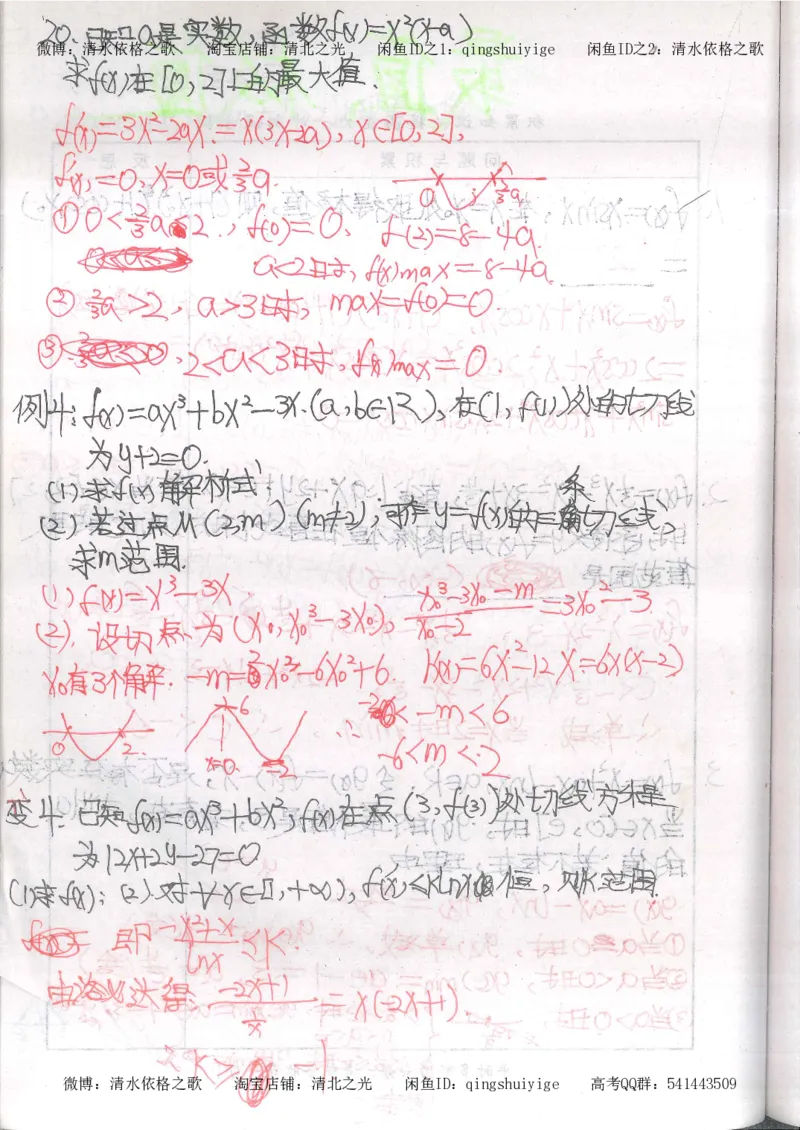 20. 已知a是实数,函数f(x)=x²(x-a)
微博:清水依格之歌 淘宝店铺:清北之光 闲鱼ID之1:qingshuiyige 闲鱼ID之2:清水依格之歌
求f(x)在[0,2]上的最大值.
f'(x)=3x²-2ax=x(3x-2a), x∈[0,2],
f'(x)=0, x=0或2/3a.
0 2/3a
① 0<2/3a≤2, f(0)=0, f(2)=8-4a.
a<2时, f(x)max=8-4a
② 2/3a>2, a>3时, max=f(0)=0
③ 2<a<3时, f(x)max=0.
例4: f(x)=ax³+bx²-3x.(a,b∈R), 在(1,f(1))处的切线
为y+2=0.
(1)求f(x)解析式;
(2)若过点M(2,m)(m≠2),可作y=f(x)的三条切线,
求m范围.
(1) f(x)=x³-3x
(2). 设切点为(x₀,x₀³-3x₀), (x₀³-3x₀-m)/(x₀-2)=3x₀²-3
x₀有3个解. -m=2x₀³-6x₀²+6. h'(x)=6x²-12x=6x(x-2)
0 2. x=0 6 -2 ∴ -2<-m<6
-6<m<2
变4. 已知f(x)=ax³+bx²,f(x)在点(3,f(3))处切线方程
为12x+2y-27=0
(1)求f(x); (2).对∀x∈[1,+∞), f(x)<klnx恒, 求k范围.
即 (-x²+x)/lnx ≤k.
由洛必达得 (-2x+1)/(1/x) =x(-2x+1)
k≥-1
微博:清水依格之歌 淘宝店铺:清北之光 闲鱼ID:qingshuiyige 高考QQ群:541443509